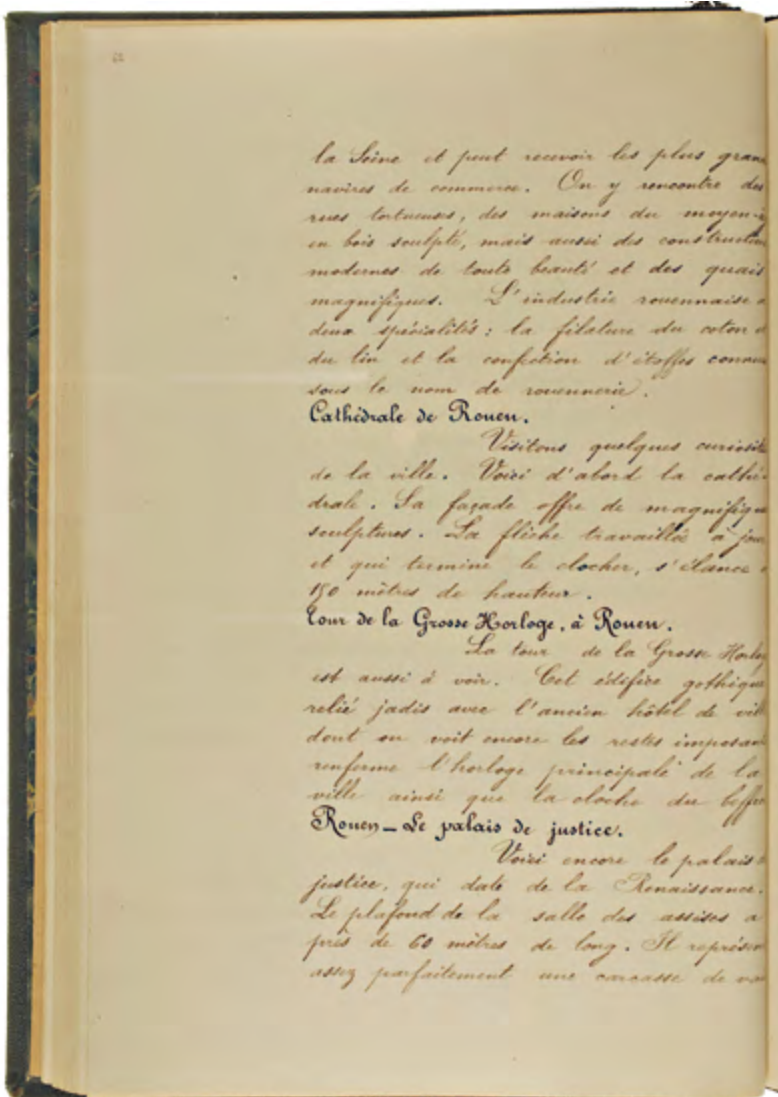 62
la Seine et peut recevoir les plus gran
navires de commerce. On y rencontre des
rues tortueuses, des maisons du moyen-
en bois sculpté, mais aussi des construction
modernes de toute beauté et des quais
magnifiques. L'industrie rouennaise a
deux spécialités : la filature du coton
du lin et la confection d'étoffes connue
sous le nom de rouennerie.
Cathédrale de Rouen.
Visitons quelques curiosité
de la ville. Voici d'abord la cathé-
drale. Sa façade offre de magnifique
sculptures. La flèche travaillée à jour
et qui termine le clocher, s'élance
150 mètres de hauteur.
Tour de la Grosse Horloge, à Rouen.
La tour de la Grosse Horlog
est aussi à voir. Cet édifice gothique
relié jadis avec l'ancien hôtel de vill
dont on voit encore les restes imposan
renferme l'horloge principale de la
ville ainsi que la cloche du beffr
Rouen – Le palais de justice.
Voici encore le palais
justice, qui date de la Renaissance.
Le plafond de la salle des assises a
près de 60 mètres de long. Il représen
assez parfaitement une carcasse de va